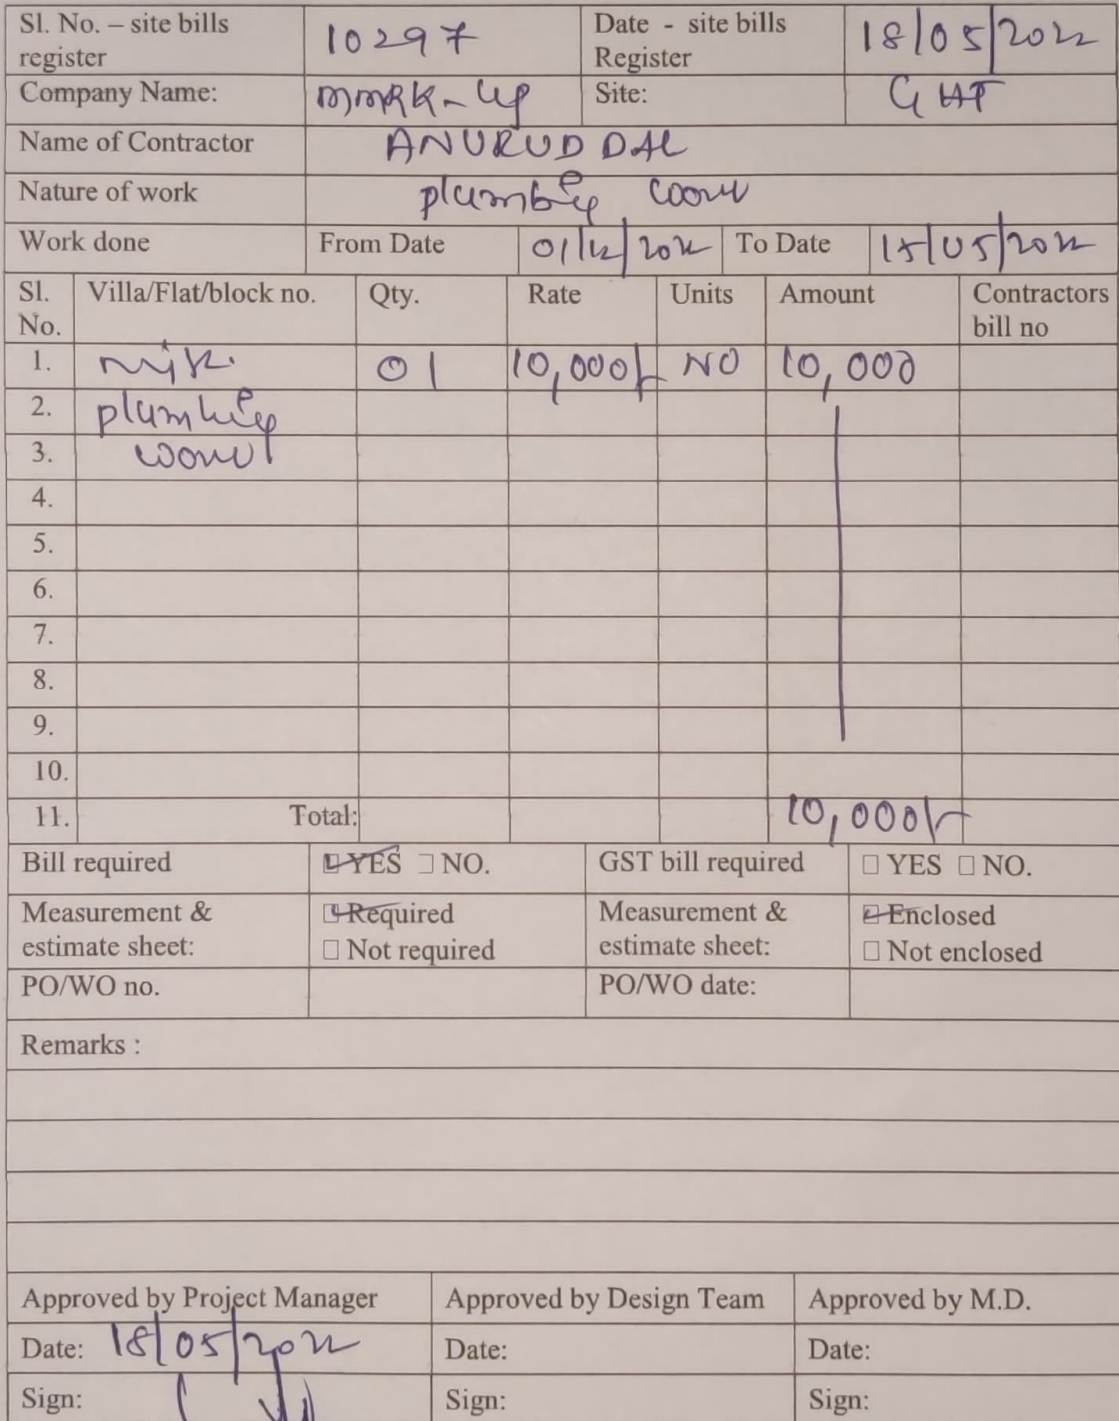 Sl. No. – site bills register 10297 Date - site bills Register 18/05/2022
Company Name: MMRK- Site: GHT
Name of Contractor ANURUD DAL
Nature of work plumbing work
Work done From Date 01/12/2022 To Date 15/05/2022
Sl. No. Villa/Flat/block no. Qty. Rate Units Amount Contractors bill no
1. 01 10,000/- NO 10,000
2. plumbing
3. work
4.
5.
6.
7.
8.
9.
10.
11. Total: 10,000/-
Bill required YES NO. GST bill required YES NO.
Measurement & estimate sheet: Required Not required Measurement & estimate sheet: Enclosed Not enclosed
PO/WO no. PO/WO date:
Remarks :
Approved by Project Manager Approved by Design Team Approved by M.D.
Date: 18/05/2022 Date: Date:
Sign: Sign: Sign: